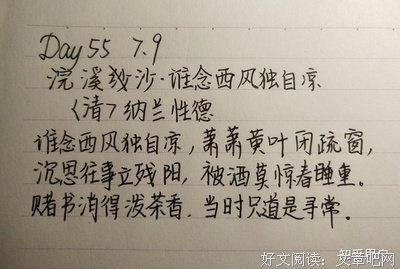 Day 55 7.9
浣溪纱沙·谁念西风独自凉
〈清〉纳兰性德
谁念西风独自凉,萧萧黄叶闭疏窗,
沉思往事立残阳,被酒莫惊春睡重。
赌书消得泼茶香,当时只道是寻常。
知乎用户
好文阅读:文章吧网